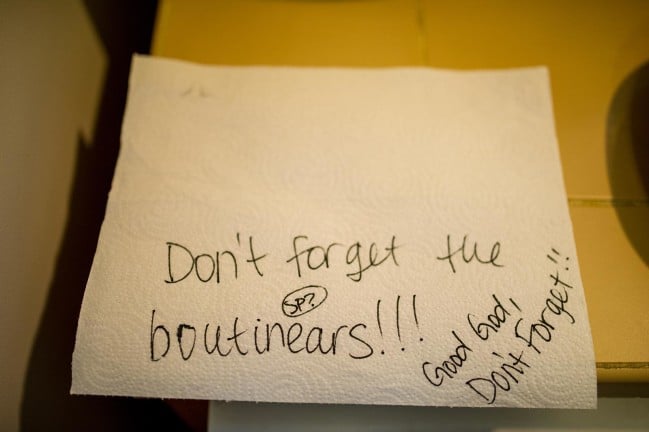 Don't forget the
SP?
boutinears!!!
Good God,
Don't Forget!!